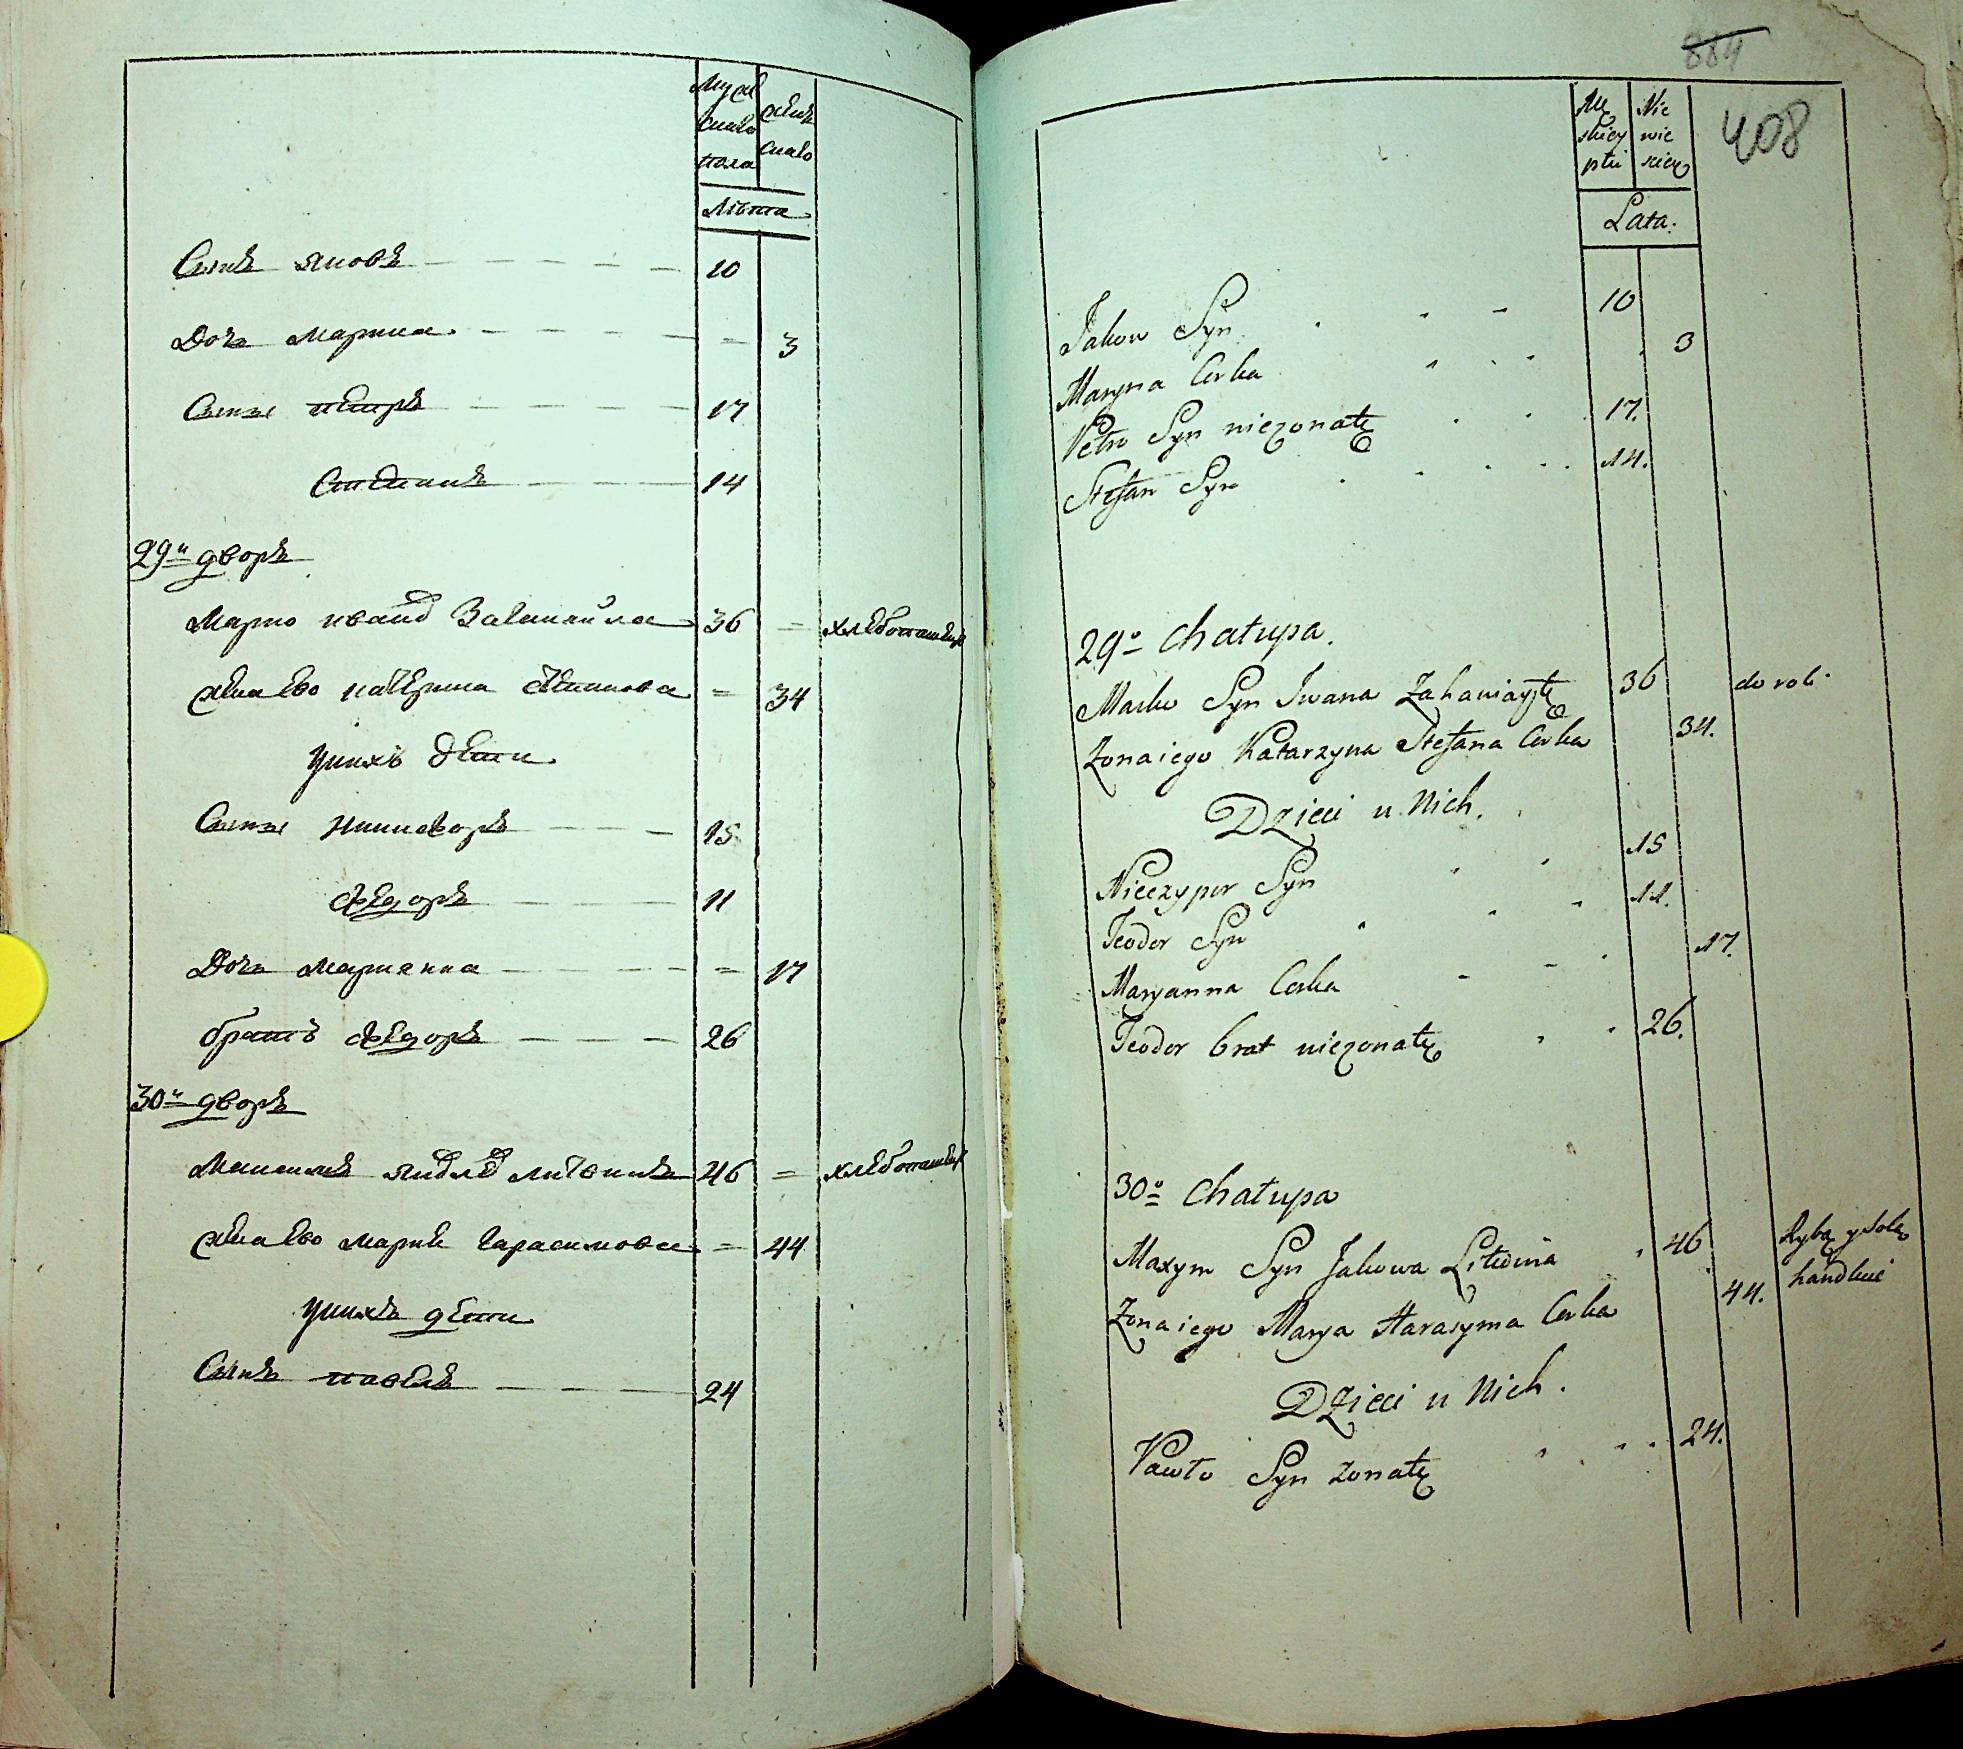 Муж женс
скаго скаго
пола
Лѣта
Сынъ яковъ 10
Дочь марина 3
Сыны петръ 17
Степанъ 14
29й дворъ
Марко иванов Заганайло 36 = хлебопашецъ
жена его катерина степанова = 34
у нихъ дети
Сыны Никифоръ 15
Федоръ 11
Дочь марияна = 17
братъ Федоръ 26
30й дворъ
Максимъ яковлев литвинъ 46 = хлебопашецъ
жена его мария гарасимова = 44
у нихъ дети
Сынъ павелъ 24
884
408
Mę Nie
skiey wie
płci skiey
Lata.
Jakow Syn 10
Maryna Corka 3
Petro Syn niezonatÿ 17.
Stefan Syn 14.
29o Chałupa.
Marko Syn Iwana 36 do rob.
Zona iego Katarzyna Stefana Corka 34.
Dzieci u Nich.
Nieczypor Syn 15
Teodor Syn 11.
Maryanna Corka 17.
Teodor brat niezonaty 26.
30o Chałupa
Maxym Syn Jakowa Litwina 46 Rybą y Solą
handluie
Zona iego Marya Harasyma Corka 44.
Dzieci u Nich.
Pawło Syn zonaty 24.